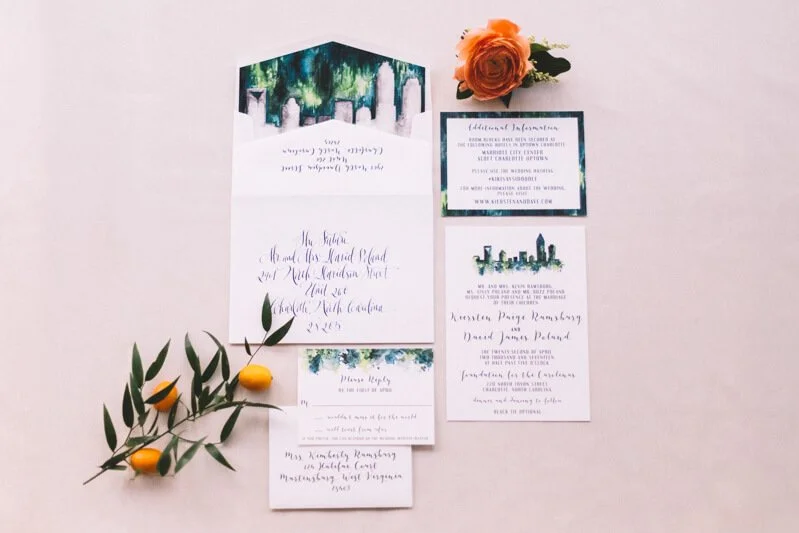 2915 North Davidson Street
Unit 260
Charlotte, North Carolina
28205
The Future
Mr. and Mrs. David Poland
2915 North Davidson Street
Unit 260
Charlotte, North Carolina
28205
Additional Information
ROOM BLOCKS HAVE BEEN SECURED AT
THE FOLLOWING HOTELS IN UPTOWN CHARLOTTE
MARRIOTT CITY CENTER
PLEASE USE THE WEDDING HASHTAG
FOR MORE INFORMATION ABOUT THE WEDDING,
PLEASE VISIT
WWW.KIERSTENANDDAVE.COM
MR. AND MRS. KEVIN RAMSBURG
MS. GINNY POLAND AND MR. BUZZ POLAND
REQUEST YOUR PRESENCE AT THE MARRIAGE
OF THEIR CHILDREN
Kiersten Paige Ramsburg
AND
David James Poland
THE TWENTY SECOND OF APRIL
TWO THOUSAND AND SEVENTEEN
AT HALF PAST FIVE
foundation for the Carolinas
220 NORTH TRYON STREET
CHARLOTTE, NORTH CAROLINA
dinner and dancing to follow
BLACK TIE OPTIONAL
Please Reply
BY THE FIRST OF APRIL
M
wouldn't miss it for the world
will toast from afar
Mrs. Kimberly Ramsburg
Halifax Court
Martinsburg, West Virginia
25403